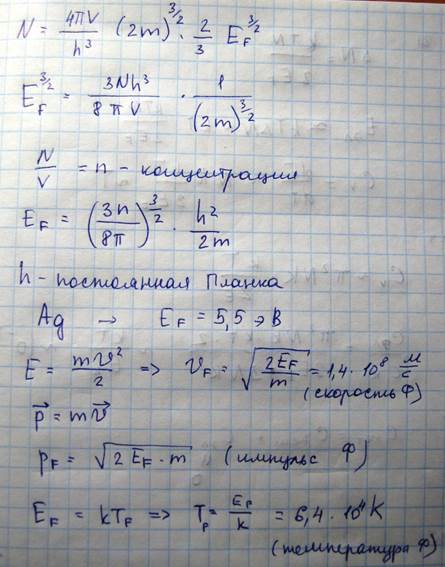 N = 4πV/h³ (2m)^3/2 · 2/3 E_F^3/2
E_F^3/2 = 3Nh³/8πV · 1/(2m)^3/2
N/V = n - концентрация
E_F = (3n/8π)^3/2 · h²/2m
h - постоянная Планка
Ag → E_F = 5,5 эВ
E = mv²/2 => v_F = √(2E_F/m) = 1,4 · 10⁸ м/с
(скорость Ф)
p⃗ = mv⃗
p_F = √(2 E_F · m) (импульс Ф)
E_F = kT_F => T_F = E_F/k = 6,4 · 10⁴ K
(температура Ф)